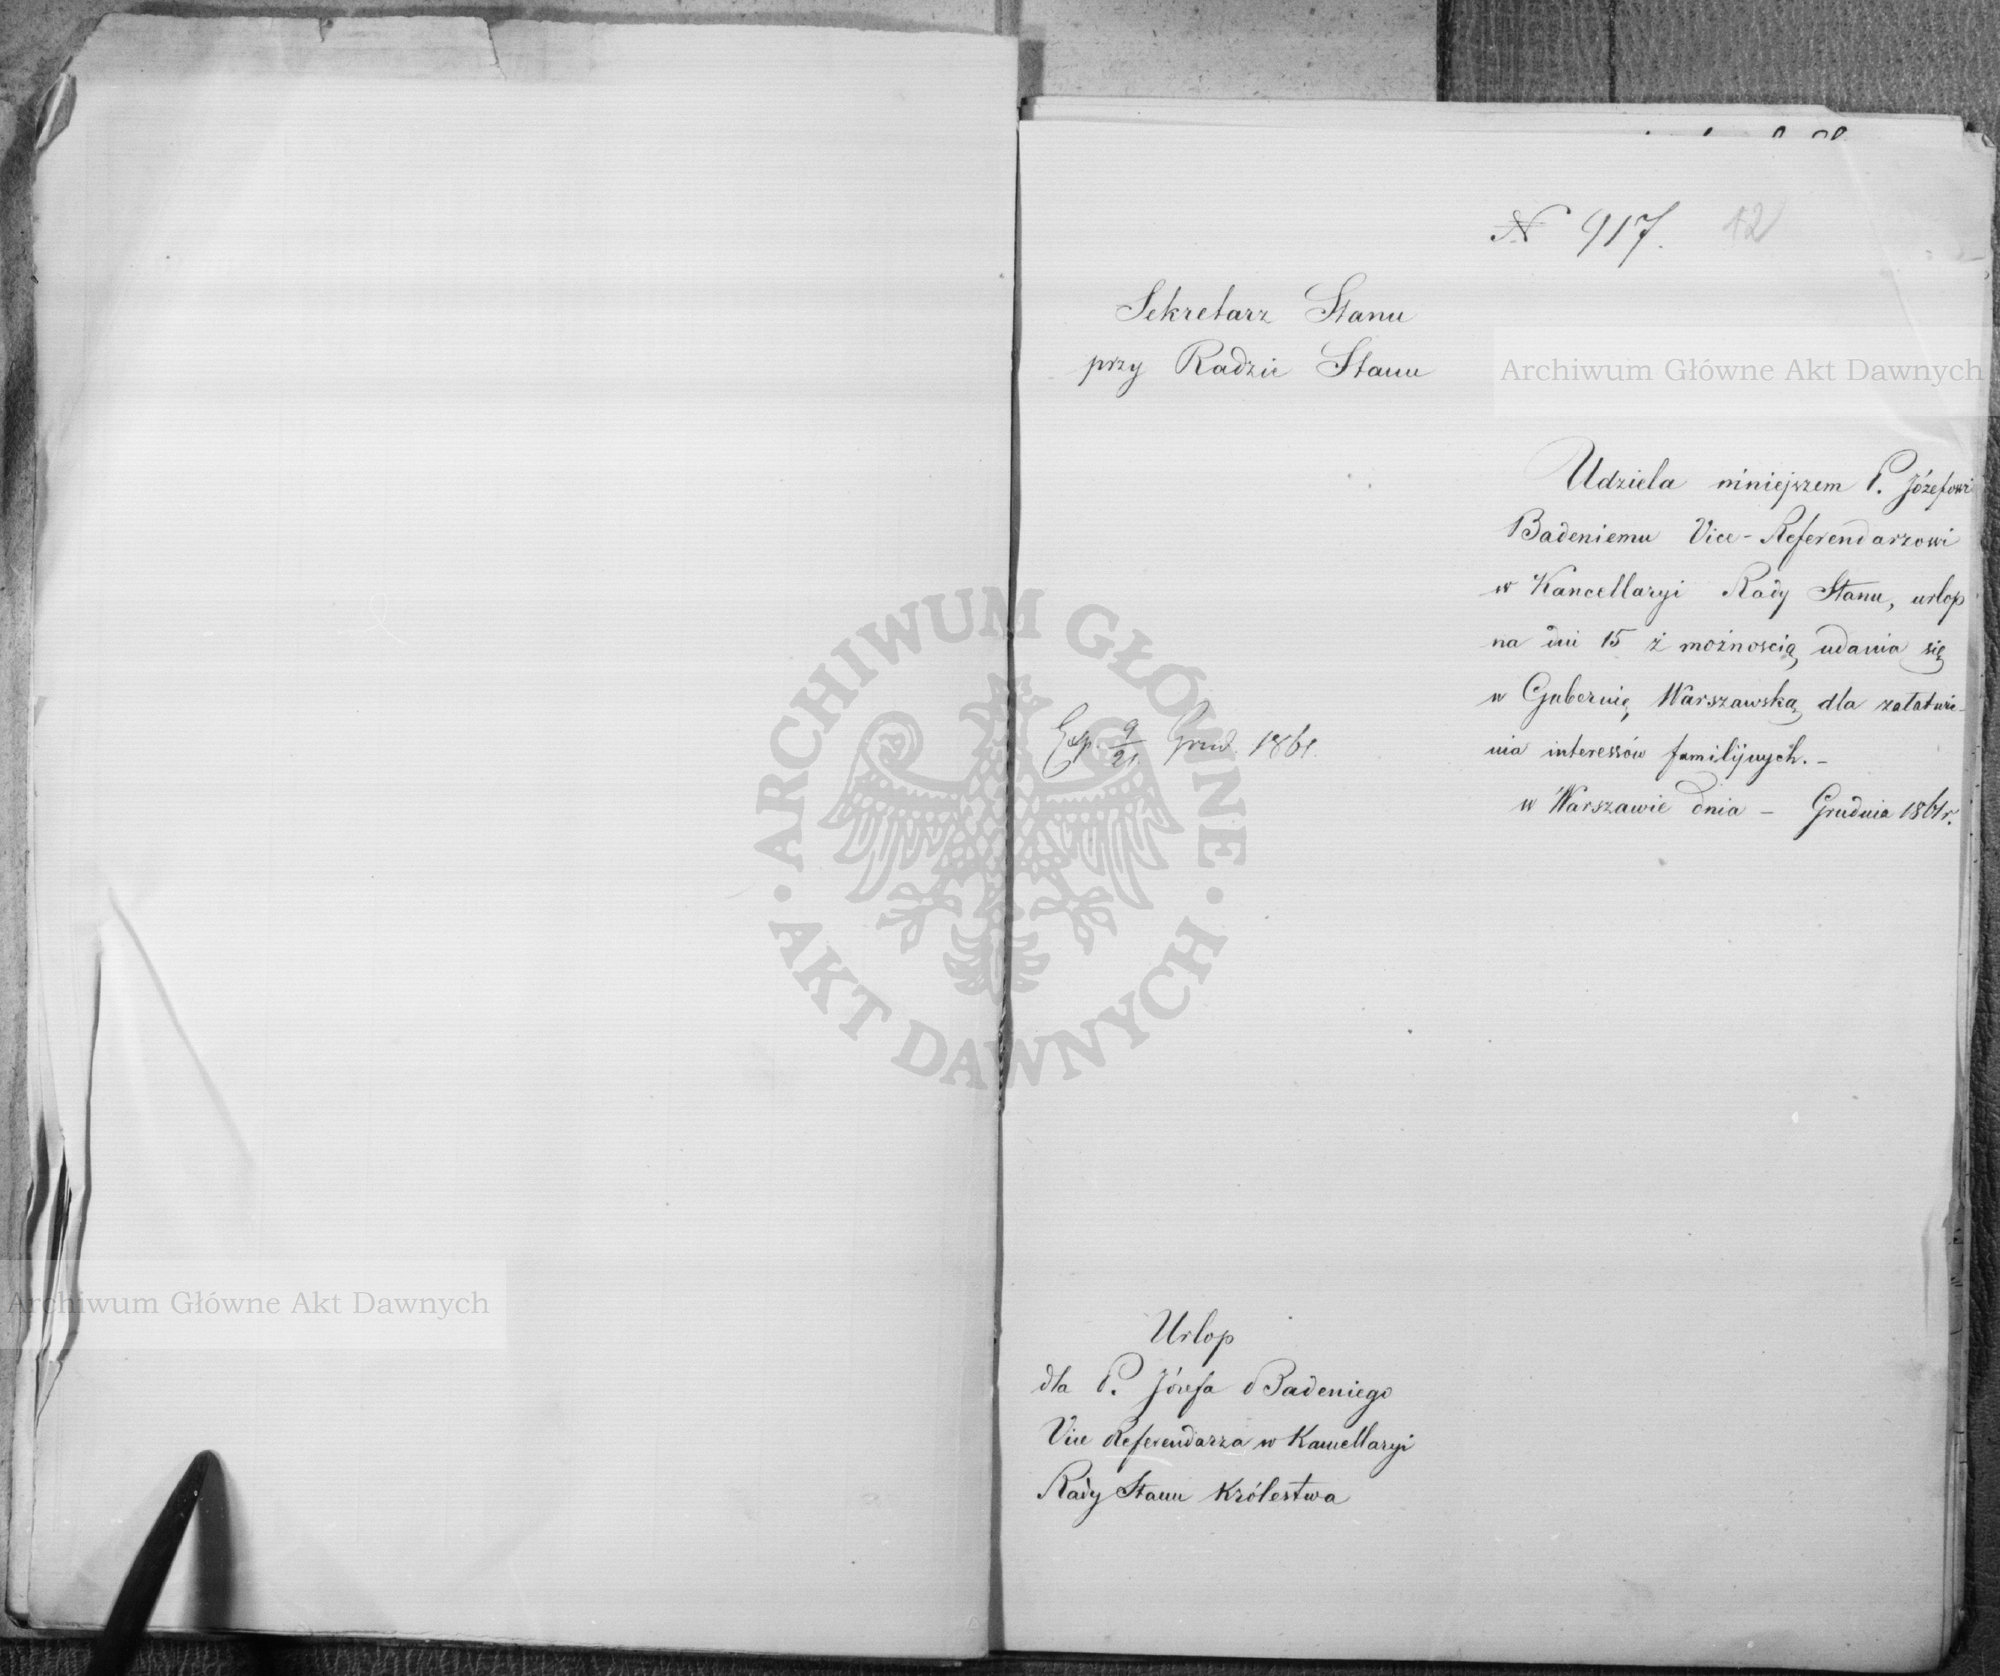 N 917.
12
Sekretarz Stanu
przy Radzie Stanu
Archiwum Główne Akt Dawnych
Udziela niniejszem P. Józefowi
Badeniemu Vice-Referendarzowi
w Kancellaryi Rady Stanu, urlop
na dni 15 z możnością udania się
w Gubernię Warszawską dla załatwie-
nia interessów familijnych.-
w Warszawie dnia - Grudnia 1861r.
Exp. 9/21 Grud. 1861.
ARCHIWUM GŁÓWNE · AKT DAWNYCH ·
Archiwum Główne Akt Dawnych
Urlop
dla P. Józefa Badeniego
Vice Referendarza w Kancellaryi
Rady Stanu Królestwa